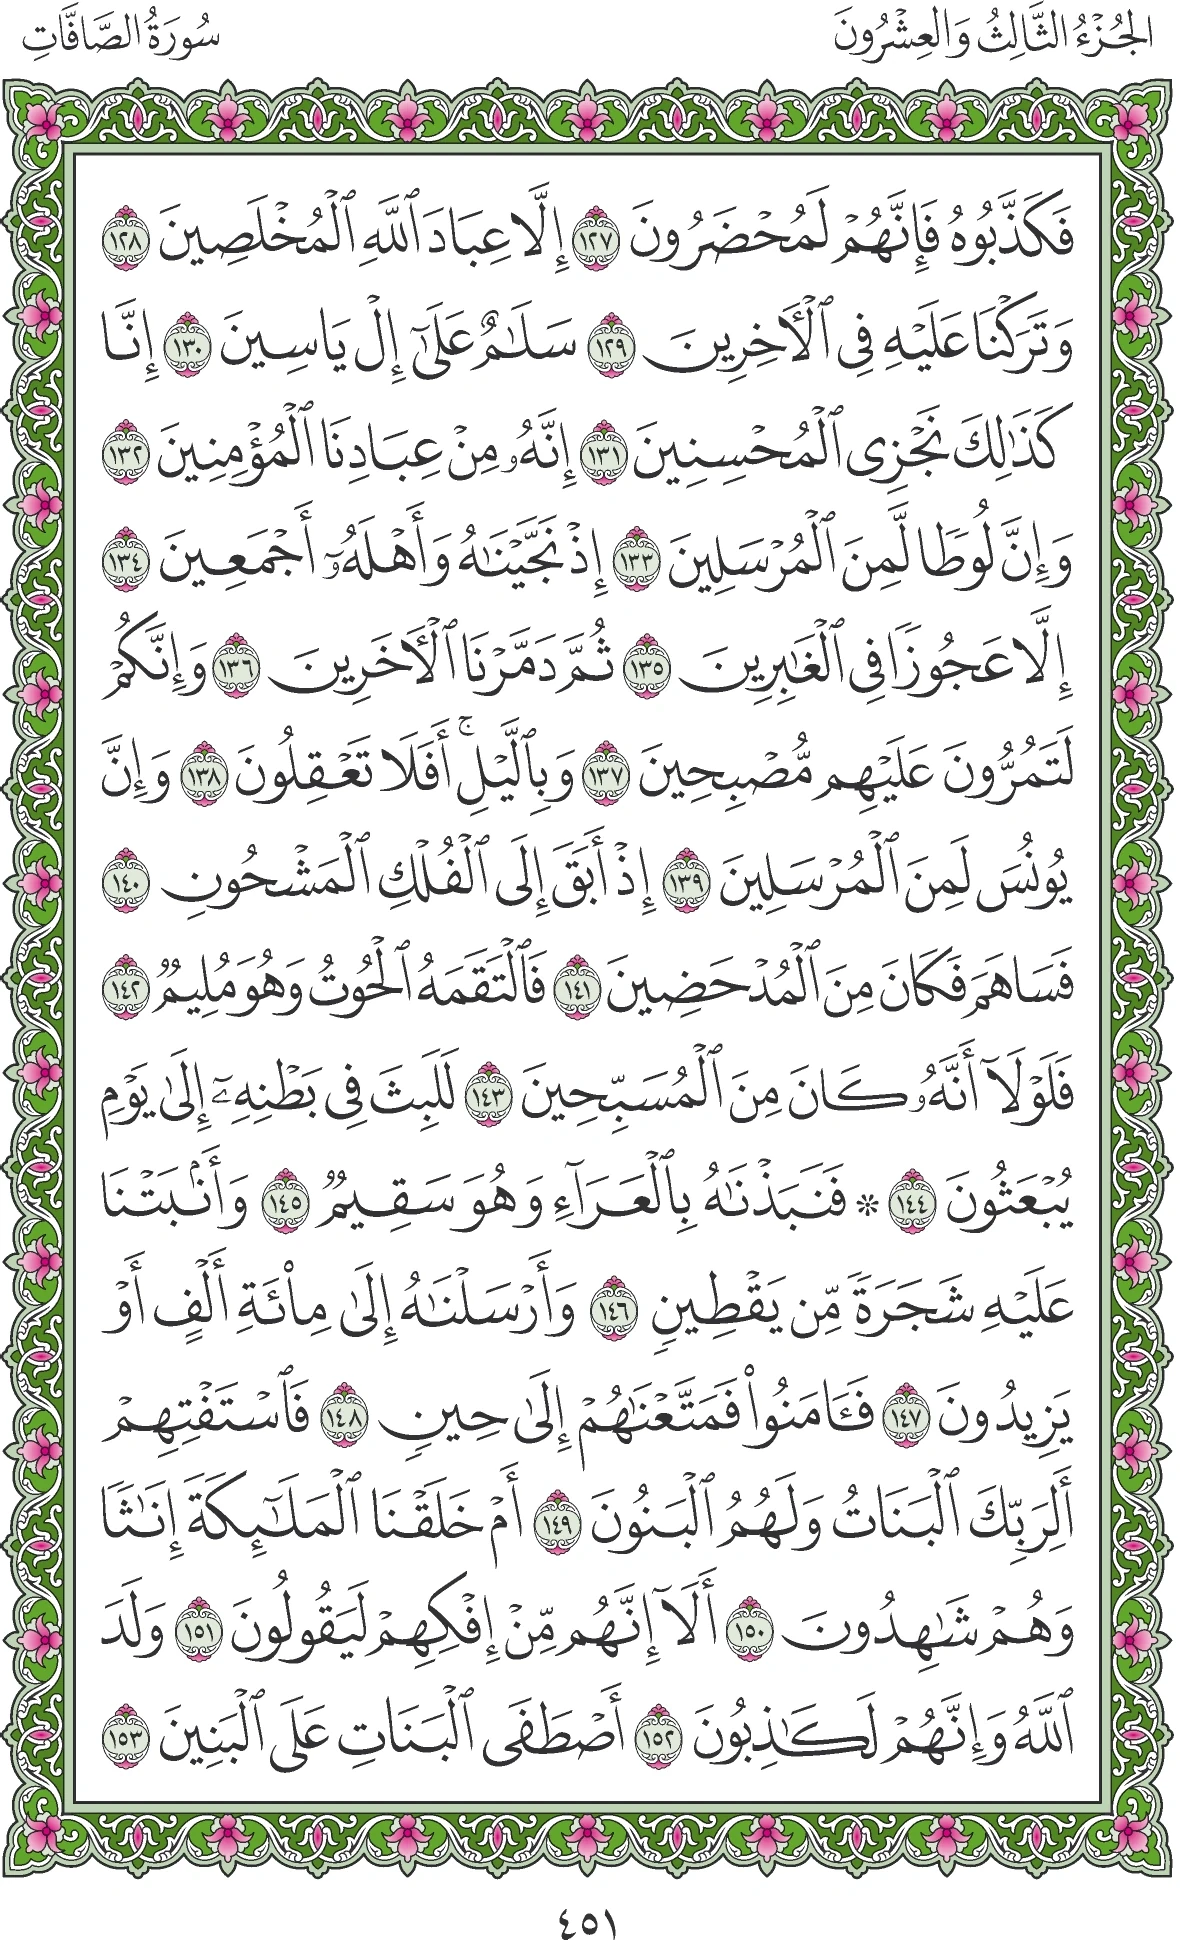 الجُزْءُ الثَّالِثُ وَالعِشْرُونَ
سُورَةُ الصَّافَّاتِ
فَكَذَّبُوهُ فَإِنَّهُمْ لَمُحْضَرُونَ ١٢٧ إِلَّا عِبَادَ ٱللَّهِ ٱلْمُخْلَصِينَ ١٢٨
وَتَرَكْنَا عَلَيْهِ فِى ٱلْـَٔاخِرِينَ ١٢٩ سَلَـٰمٌ عَلَىٰٓ إِلْ يَاسِينَ ١٣٠ إِنَّا
كَذَٰلِكَ نَجْزِى ٱلْمُحْسِنِينَ ١٣١ إِنَّهُۥ مِنْ عِبَادِنَا ٱلْمُؤْمِنِينَ ١٣٢
وَإِنَّ لُوطًا لَّمِنَ ٱلْمُرْسَلِينَ ١٣٣ إِذْ نَجَّيْنَـٰهُ وَأَهْلَهُۥٓ أَجْمَعِينَ ١٣٤
إِلَّا عَجُوزًا فِى ٱلْغَـٰبِرِينَ ١٣٥ ثُمَّ دَمَّرْنَا ٱلْـَٔاخَرِينَ ١٣٦ وَإِنَّكُمْ
لَتَمُرُّونَ عَلَيْهِم مُّصْبِحِينَ ١٣٧ وَبِٱلَّيْلِ ۚ أَفَلَا تَعْقِلُونَ ١٣٨ وَإِنَّ
يُونُسَ لَمِنَ ٱلْمُرْسَلِينَ ١٣٩ إِذْ أَبَقَ إِلَى ٱلْفُلْكِ ٱلْمَشْحُونِ ١٤٠
فَسَاهَمَ فَكَانَ مِنَ ٱلْمُدْحَضِينَ ١٤١ فَٱلْتَقَمَهُ ٱلْحُوتُ وَهُوَ مُلِيمٌ ١٤٢
فَلَوْلَآ أَنَّهُۥ كَانَ مِنَ ٱلْمُسَبِّحِينَ ١٤٣ لَلَبِثَ فِى بَطْنِهِۦٓ إِلَىٰ يَوْمِ
يُبْعَثُونَ ١٤٤ ۞ فَنَبَذْنَـٰهُ بِٱلْعَرَآءِ وَهُوَ سَقِيمٌ ١٤٥ وَأَنۢبَتْنَا
عَلَيْهِ شَجَرَةً مِّن يَقْطِينٍ ١٤٦ وَأَرْسَلْنَـٰهُ إِلَىٰ مِا۟ئَةِ أَلْفٍ أَوْ
يَزِيدُونَ ١٤٧ فَـَٔامَنُوا۟ فَمَتَّعْنَـٰهُمْ إِلَىٰ حِينٍ ١٤٨ فَٱسْتَفْتِهِمْ
أَلِرَبِّكَ ٱلْبَنَاتُ وَلَهُمُ ٱلْبَنُونَ ١٤٩ أَمْ خَلَقْنَا ٱلْمَلَـٰٓئِكَةَ إِنَـٰثًا
وَهُمْ شَـٰهِدُونَ ١٥٠ أَلَآ إِنَّهُم مِّنْ إِفْكِهِمْ لَيَقُولُونَ ١٥١ وَلَدَ
ٱللَّهُ وَإِنَّهُمْ لَكَـٰذِبُونَ ١٥٢ أَصْطَفَى ٱلْبَنَاتِ عَلَى ٱلْبَنِينَ ١٥٣
٤٥١